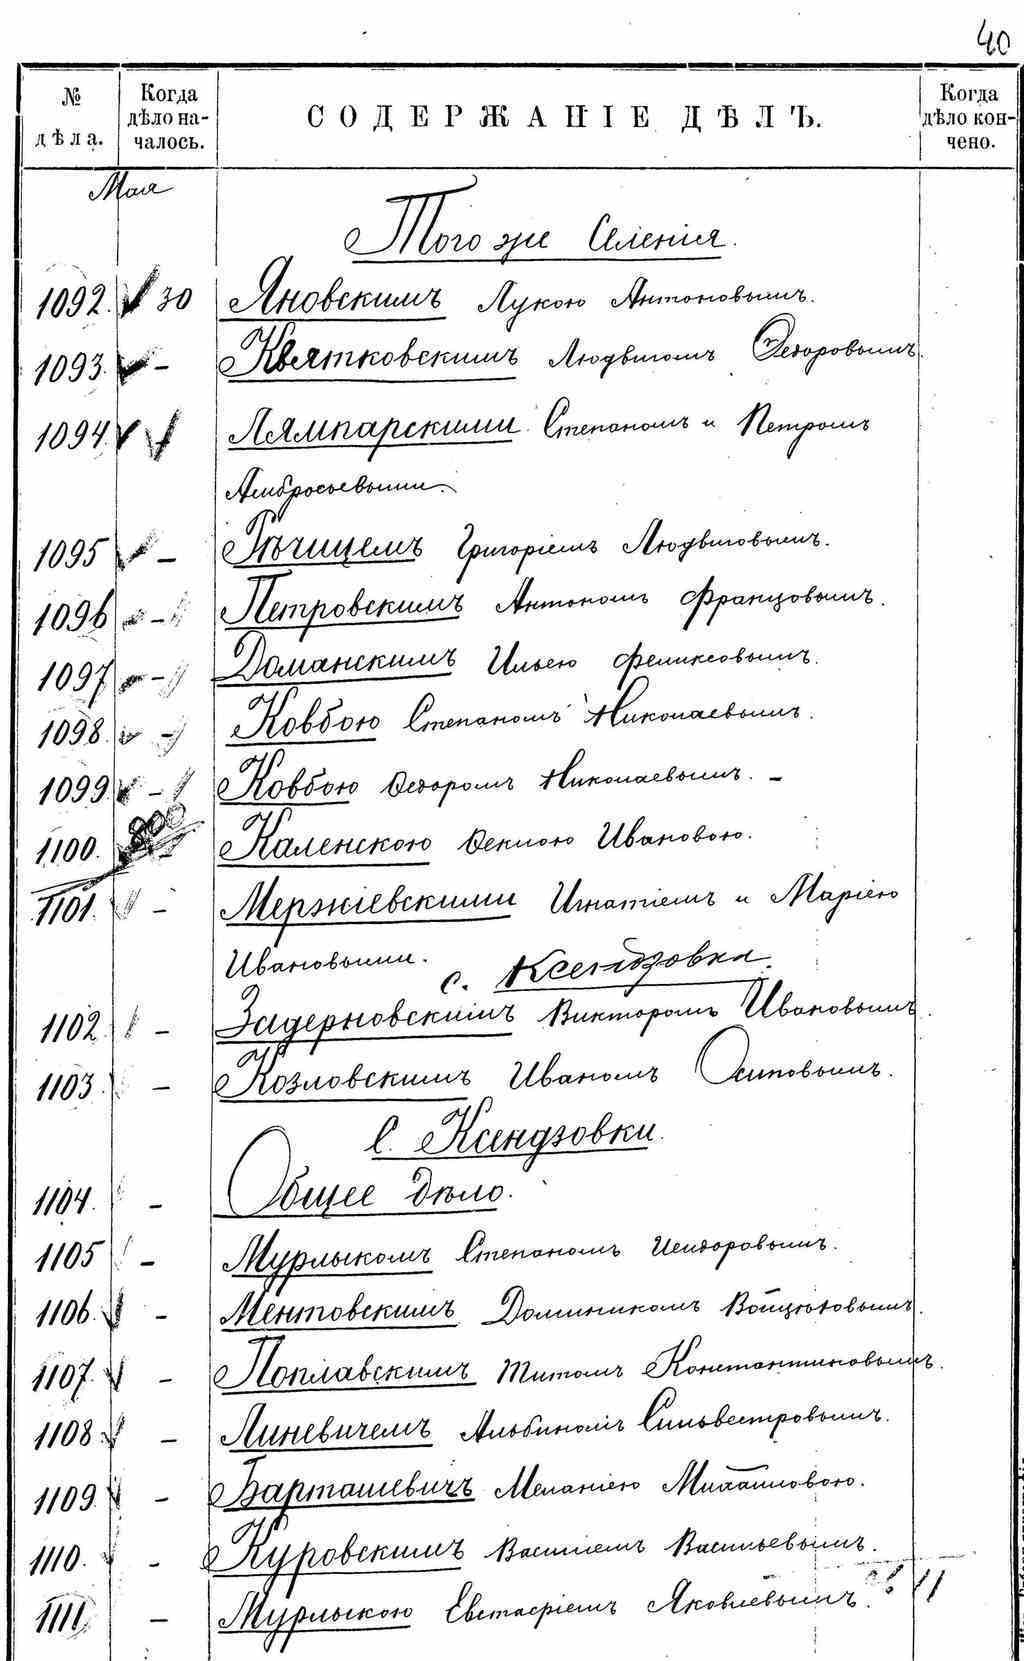 40
№ дѣла. Когда дѣло началось. СОДЕРЖАНІЕ ДѢЛЪ. Когда дѣло кончено.
Мая
Того же Селенія.
1092. 30 Яновскимъ Лукою Антоновымъ.
1093. - Квятковскимъ Людвигомъ Ѳедоровымъ.
1094. Лямпарскими Степаномъ и Петромъ
Амбросьевыми.
1095 - Рѣчицемъ Григоріемъ Людвиговымъ.
1096 - Петровскимъ Антономъ Францовымъ.
1097 - Доманскимъ Ильею Феликсовымъ.
1098. - Ковбою Степаномъ Николаевымъ.
1099. - Ковбою Ѳедоромъ Николаевымъ. -
800
1100. - Каленскою Ѳеклою Ивановою.
1101. - Мержіевскими Игнатіемъ и Маріею
Ивановыми.
с. Ксендзовка.
1102. - Задерновскимъ Викторомъ Ивановымъ.
1103. - Козловскимъ Иваномъ Осиповымъ.
С. Ксендзовки.
1104. - Общее дѣло.
1105 - Мурлыкомъ Степаномъ Исидоровымъ.
1106. - Ментовскимъ Доминикомъ Войцѣховымъ.
1107. - Поплавскимъ Титомъ Константиновымъ.
1108. - Линевичемъ Альбиномъ Сильвестровымъ.
1109. - Барташевичъ Меланіею Михайловою.
1110. - Куровскимъ Василіемъ Васильевымъ.
1111. - Мурлыкою Евстафіемъ Яковлевымъ.